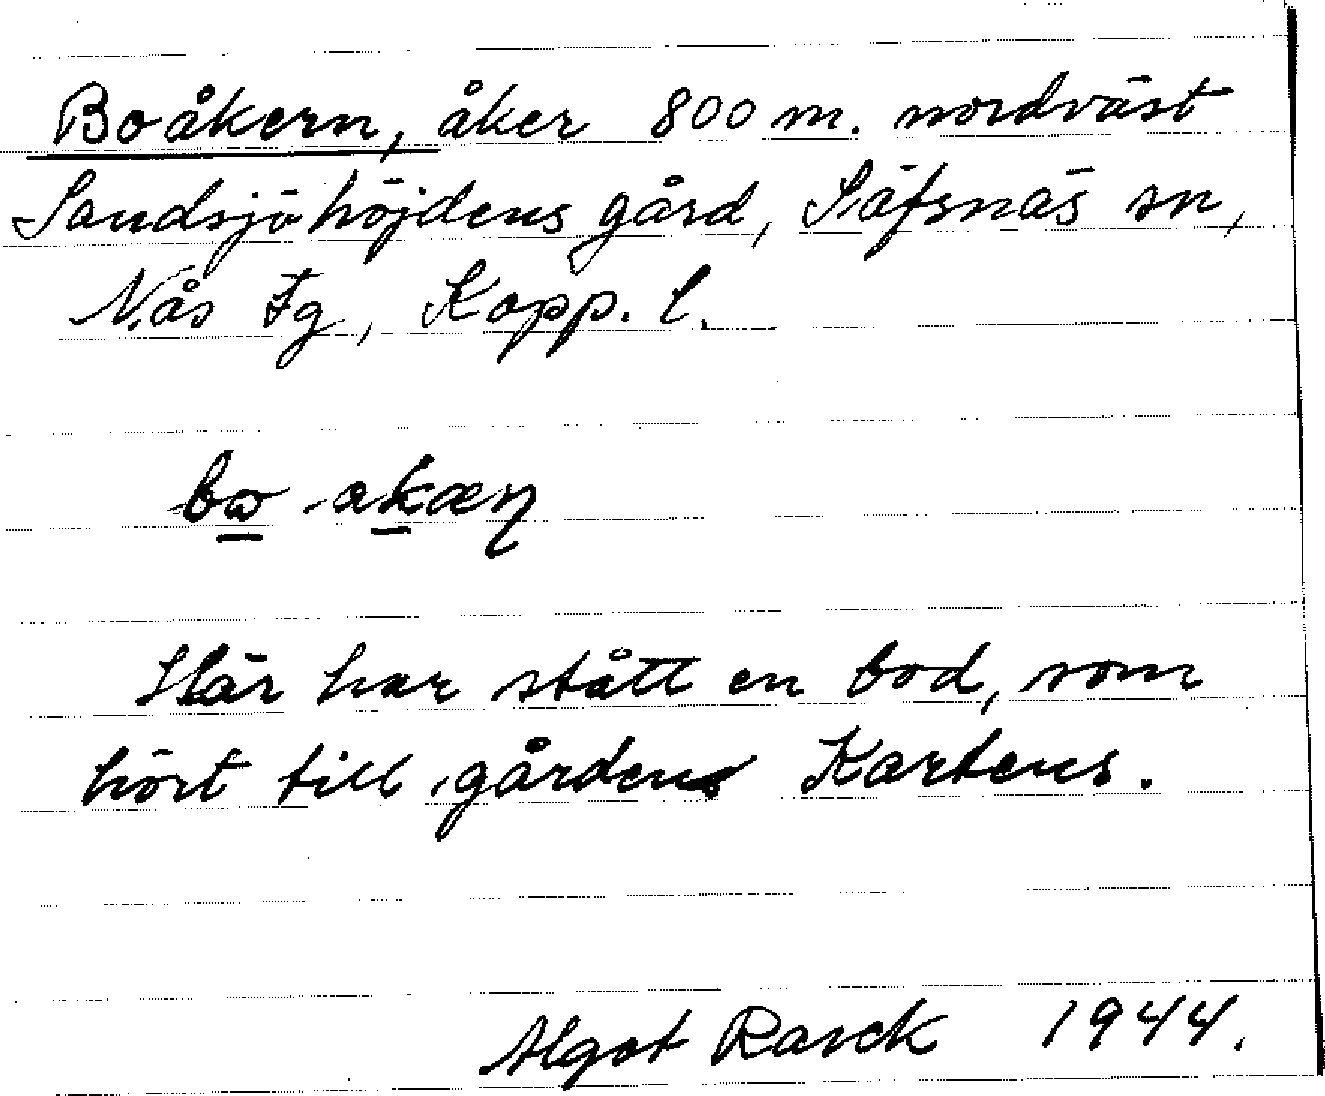 Boåkern, åker 800 m. nordväst
Sandsjöhöjdens gård, Säfsnäs sn,
Nås Fg, Kopp. l.
Här har stått en bod, som
hört till gården Kartens.
Algot Ravck 1944.